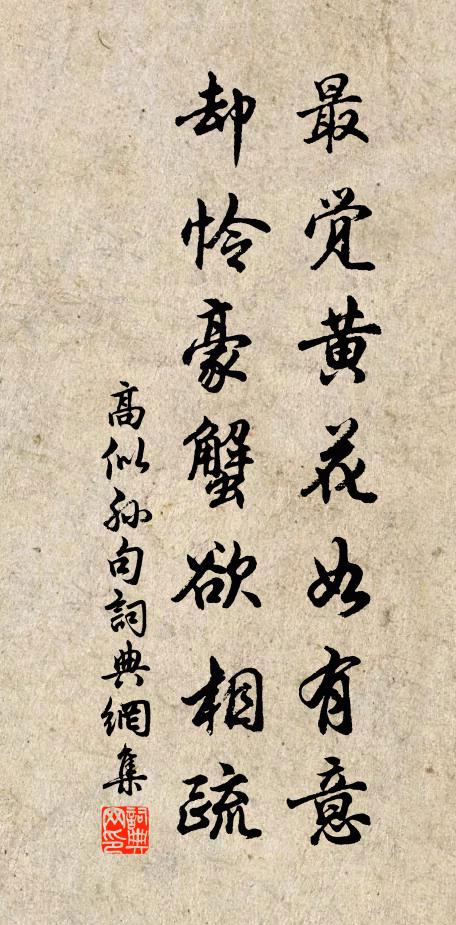 最覚黄花如有意
却怜豪蟹欲相疏
高似孙句詞典網集
詞典
网印